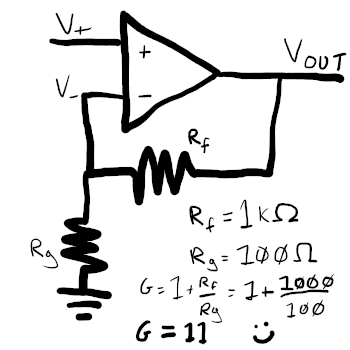 V+
+
V-
-
VOUT
Rf
Rg
Rf = 1kΩ
Rg = 100Ω
G = 1 + Rf/Rg = 1 + 1000/100
G = 11 :)